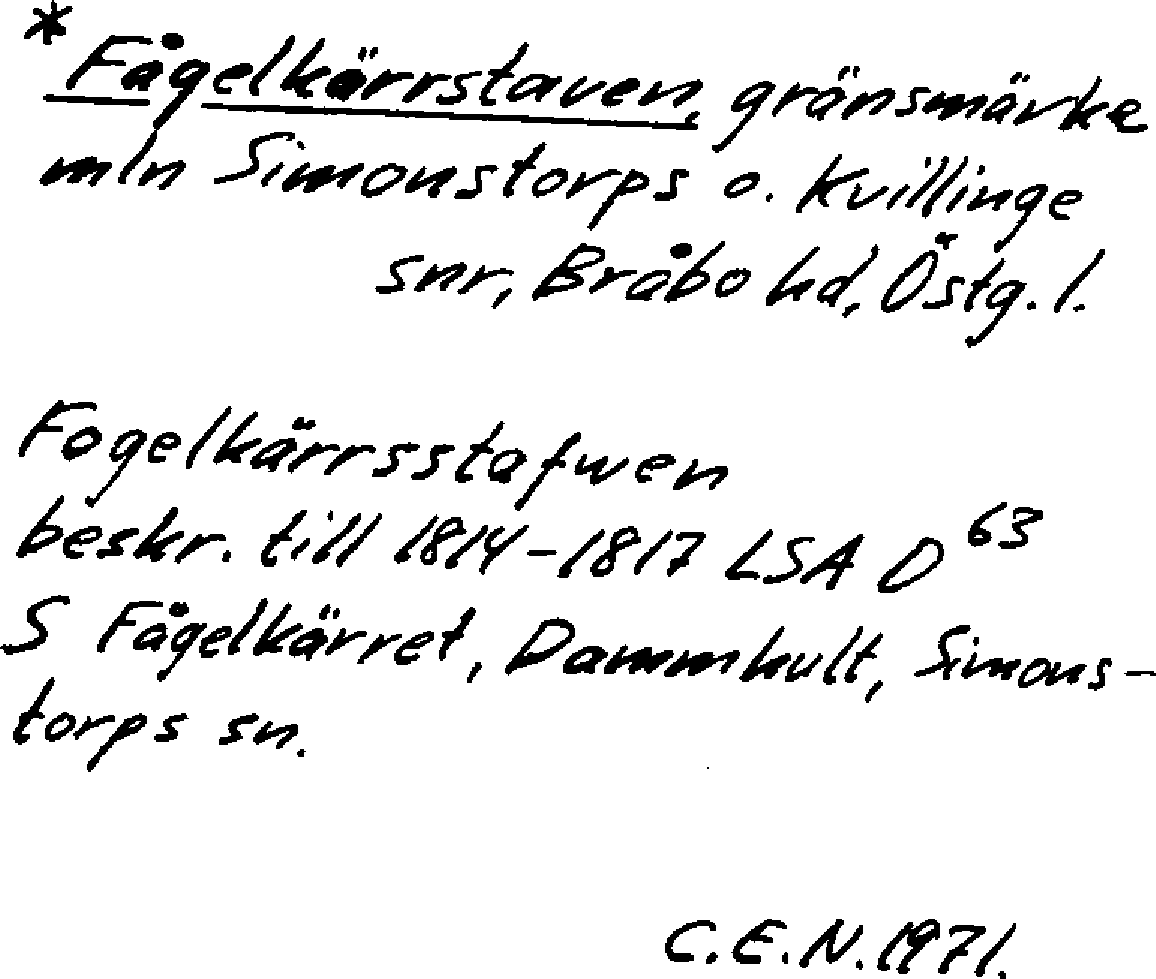 * Fågelkärrstaven, gränsmärke
mln Simonstorps o. Kvillinge
snr, Bråbo hd, Östg. l.
Fogelkärrsstafwen
beskr. till 1814-1817 LSA D 63
S Fågelkärret, Dammhult, Simons-
torps sn.
C.E.N. 1971.